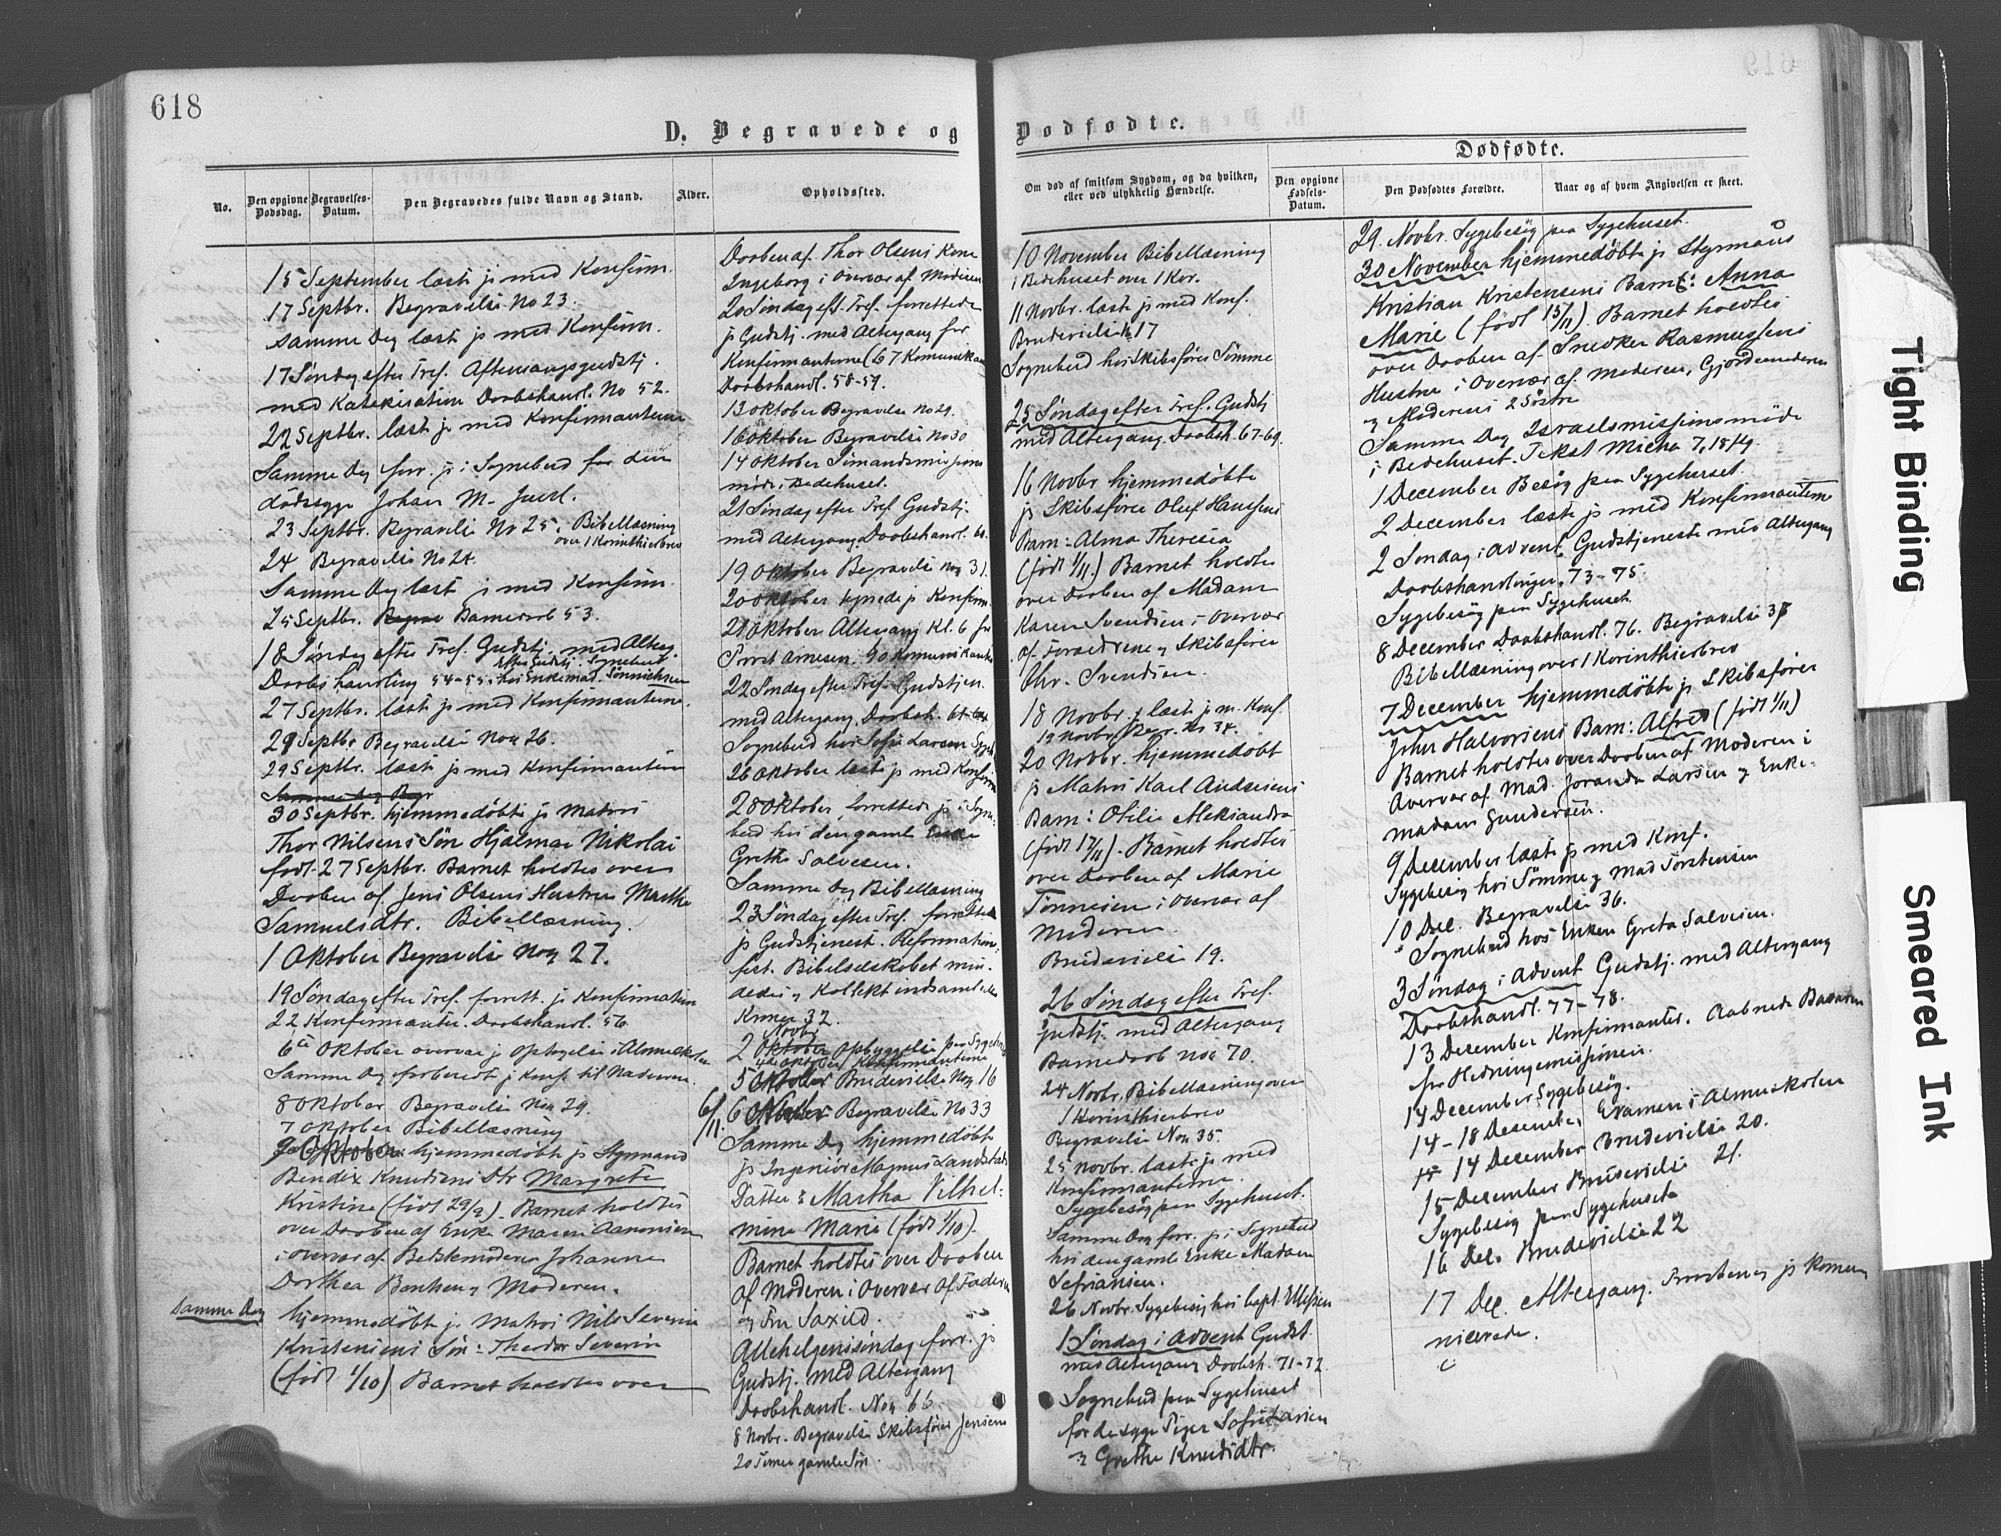 618
619
D. Begravede og
Dødfødte.
No.
Den opgivne Dødsdag.
Begravelses-Datum.
Den Begravedes fulde Navn og Stand.
Alder.
Opholdssted.
Om død af smitsom Sygdom, og da hvilken, eller ved ulykkelig Hændelse.
Dødfødte.
Den opgivne Fødsels-Datum.
Den Dødfødtes Forældre.
Naar og af hvem Angivelsen er skeet.
15 September læst jo med Konfirm.
17 Septbr. Begravelse No 23.
Samme Dag læst jo med Konfirm.
17 Søndag efter Tref. Aftensangsgudstj.
med Katekisation Daabshandl. No 52.
22 Septbr. læst jo med Konfirmanterne
Samme Dag forr. jo i Sognebud for den
dødssyge Johan M. Juell.
23 Septbr. Begravelse No 25. Bibellæsning
over 1 Korinthierbrev
24 Begravelse No 24.
Samme Dag læst jo med Konfirm.
25 Septbr. Barnedaab 53.
18 Søndag efter Tref. Gudstj. med Alterg.
Efter Gudstj. Sognebud
Daabshandling 54-55. hos Enkemad. Sønnichsen
27 Septbr. læst jo med Konfirmanterne.
29 Septbr Begravelse No 26.
29 Septbr. læst jo med Konfirmanterne
Samme Dag Begr
30 Septbr. hjemmedøbte jo Matros
Thor Nilsens Søn Hjalmar Nikolai
født 27 Septbr. Barnet holdtes over
Daaben af Jens Olsens Hustru Marthe
Samuelsdtr. Bibellæsning.
1 Oktober Begravelse No 27.
19 Søndag efter Tref. forrett. jo Konfirmation
22 Konfirmanter. Daabshandl. 56
6te Oktober overvar jo Optagelse i Almueskolen
Samme Dag forberedt jo Konf. til Nadveren.
8 Oktober Begravelse No 29.
7 Oktober Bibellæsning
9 Oktober hjemmedøbte jo Styrmand
Bendix Knudsens Dtr Margrete
Kristine (født 29/9). Barnet holdtes
over Daaben af Enke Maren Aanonsen
i Overvær af Bedstemoderen Johanne
Dorthea Benhen og Moderen.
Samme Dag hjemmedøbte jo Matros Nils Severin
Kristensens Søn: Theodor Severin
(født 1/10) Barnet holdtes over
Daaben af Thor Olsens Kone
Ingeborg i Overvær af Moderen
20 Søndag eft. Tref. forrettede
jo Gudstj. med Altergang for
Konfirmanterne (67 Komunik
Daabshandl. 58-59.
13 Oktober Begravelse No 29.
16 Oktober Begravelse No 30
14 Oktober Sømandsmissions
møde i Bedehuset.
21 Søndag efter Tref Gudstj.
med Altergang. Daabshandl. 60.
19 Oktober Begravelse No 31.
20 Oktober jo Konfirm.
21 Oktober Altergang Kl. 6
Provst Arnesen. 90 Komunikanter
22 Søndag efter Tref. Gudstjen.
med Altergang. Daabsh. 61-64
Sognebud hos Sofie Larsen
26 Oktober læst jo med Konfirm
28 Oktober forrettede jo i Sogne-
bud hos den gamle Enke
Grethe Salvesen.
Samme Dag Bibellæsning
23 Søndag efter Tref. forrettede
jo Gudstjenest. Reformations-
fest. Bibelselskabet min-
dedes og Kollekt indsamledes
Kroner 32.
Novbr
2 Oktober Opbyggelse paa Sygehuset
5 Oktober Brudevielse No 16
6/11. 6 Oktober Begravelse No 33
Samme Dag hjemmedøbte
jo Ingeniør Magnus Landstads
Datter: Martha Vilhel-
mine Marie (født 1/10).
Barnet holdtes over Daaben
af Moderen i Overvær af Faderen
og Fru Saxild.
Allehelgenssøndag forr. jo
Gudstj. med Altergang
Daabshandl. No 66
8 Novbr. Begravelse Skibsfører Jensens
20 Timer gamle Søn.
10 November Bibellæsning
i Bedehuset over 1 Kor.
11 Novbr. læst jo med Konf.
Brudevielse No 17
Sognebud hos Skibsfører Sømme
25 Søndag efter Tref. Gudstj
med Altergang. Daabsh. 67-69.
16 Novbr. hjemmedøbte
jo Skibsfører Oluf Hansens
Barn: Alma Theresia
(født 1/11.) Barnet holdtes
over Daaben af Madam
Karen Svendsen i Overvær
af Forældrene og Skibsfører
Chr. Svendsen.
18 Novbr. læst jo m. Konf.
19 Novbr. Begr. No 34.
20 Novbr. hjemmedøbt
jo Matros Karl Andersens
Barn: Otilie Aleksandra
(født 17/11). Barnet holdtes
over Daaben af Marie
Tønnesen i Overvær af
Moderen.
Brudevielse 19.
26 Søndag efter Tref.
Gudstj. med Altergang
Barnedaab No 70.
24 Novbr. Bibellæsning over
1 Korinthierbrev
Begravelse No 35.
25 Novbr. læst jo med
Konfirmanterne.
Sygebesøg paa Sygehuset.
Samme Dag forr. jo i Sognebud
hos den gamle Enke Madam
Sefriansen.
26 Novbr. Sygebesøg hos Capt. Ellefsen
1 Søndag i Advent Gudst.
med Altergang Daabsh. 71-72.
Sognebud paa Sygehuset
for de syge Piger Sofie Larsen
og Grethe Knudsdtr.
29. Novbr. Sygebesøg paa Sygehuset.
30 November hjemmedøbte jo Styrmand
Kristian Kristensens Barn: Anna
Marie (født 15/11). Barnet holdtes
over Daaben af Snedker Rasmussens
Hustru i Overvær af Moderen, Gjordemoderen
og Moderens 2 Søstre
Samme Dag Israelsmissionsmøde
i Bedehuset. Tekst Micha 7, 18 flg.
1 December Besøg paa Sygehuset
2 December læste jo med Konfirmanterne
2 Søndag i Advent Gudstjeneste med Altergang
Daabshandlinger. 73-75.
Sygebesøg paa Sygehuset
8 December Daabshandl. 76. Begravelse
Bibellæsning over 1 Korinthierbrev
7 December hjemmedøbte jo Skibsfører
John Halvorsens Barn: Alfred (født 1/11)
Barnet holdtes over Daaben af Moderen i
Overvær af Mad. Joranda Larsen og Enke-
madam Gundersen.
9 December læste jo med Konf.
Sygebesøg hos Sømme og Mad Torstensen
10 Dec. Begravelse 36.
" Sognebud hos Enken Greta Salvesen.
3 Søndag i Advent Gudstj. med Altergang
Daabshandl. 77-78.
13 December Konfirmanter. Aabnede Basaren
for Hedningemissionen.
14 December Sygebesøg.
14-18 Desember Examen i Almueskolen
14 December Brudevielse 20.
15 Desember Brudevielse 21.
Sygebesøg paa Sygehuset
16 Dec. Brudevielse 22
17 Dec. Altergang.
Tight Binding
Smeared Ink